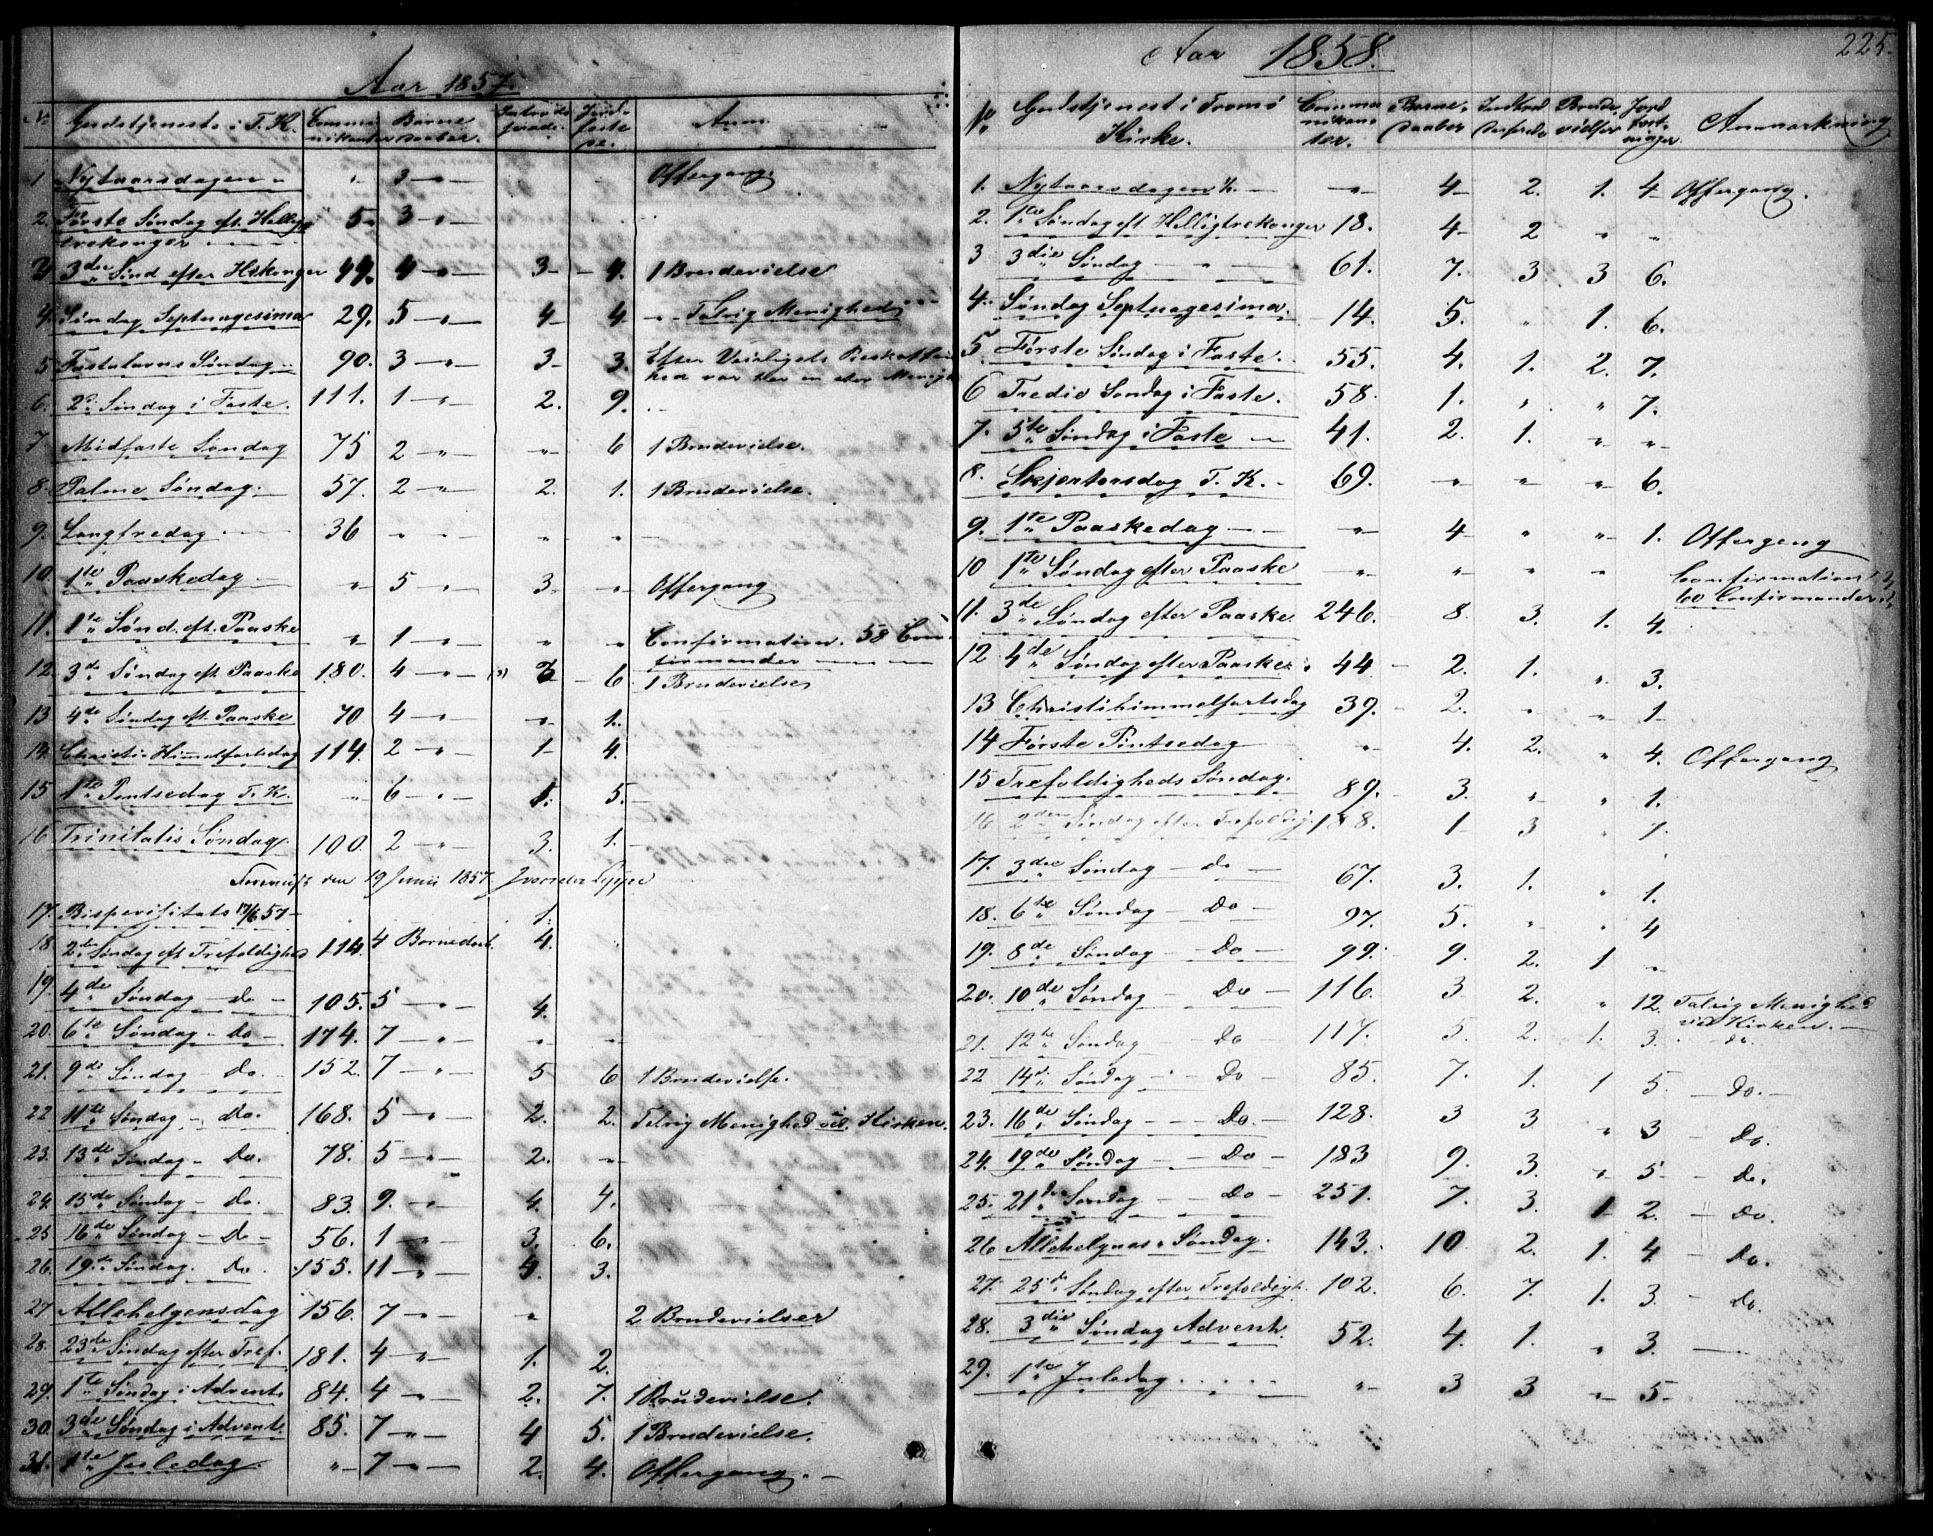 Aar 1857.
Nr. Gudstjeneste i T. K. Communikanter Barnedaaber. Introducerede. Jordfæstelse. Anm.
1 Nytaarsdagen " " 3 — " — Offergang
2. Første Søndag eft. Hellig 5 3 — " —
trekonger
3 3die Sønd efter H3konger 49. 4 — " — 3 — 9. 1 Brudevielse
4. Søndag Septuagesima 29. 5 — " — 4 4. Talvig Menighed
5 Fastelavns Søndag 90. 3 — " — 3 3. Efter
var her en stor Menigh
6. 2d. Søndag i Faste. 111. 1 — " — 2. 9.
7 Midfaste Søndag 75 2 — " — " 6 1 Brudevielse.
8. Palme Søndag. 57. 2 — " — 2. 1. 1 Brudevielse.
9. Langfredag 36 " " " "
10. 1ste Paaskedag " 5 " 3 " Offergang
11. 1te Sønd. eft. Paaske " 1 — " — " " Confirmation. 58 Con
firmander
12. 3de Søndag eft Paaske 180. 4 — " — 6. 1 Brudevielse
13 4de Søndag eft. Paaske 70 4 — " — " 1.
14. Christi Himelfartsdag 114. 2 — " — 1 4.
15 1te Pintsedag T. K. " 6 — " — 1. 5.
16 Trinitatis Søndag 100. 2 — " — 3. 1.
den 19 Junii 1857
17. Bispevisitats 19/6 57 — 1.
18. 2den Søndag eft Trefoldighed 114. 4 Barnedaab. 4.
19. 4de Søndag — do — 105. 5 — " — 4.
20. 6te Søndag — do — 174. 7 — " — "
21. 9de Søndag — Do. 152. 7 — " — 5 6 1 Brudevielse.
22 11te Søndag — Do. 168. 5 — " — 2. 2. Talvig Menighed ved Kirken.
23. 13de Søndag — Do. 78. 5 — " — 2. "
24. 15de Søndag — Do. 83. 9. — " — 4. 4.
25 16de Søndag — Do — 56. 1 — " — 3. 6.
26. 19de Søndag. Do. 155. 11 — " — 4. 3.
27 Allehelgensdag 156. 7 — " — " 2 Brudevielser
28. 23de Søndag efter Tref. 181. 4 — " — 1. 2.
29. 1te Søndag i Advent. 84. 4 — " — 2. 7. 1 Brudevielse.
30. 3de Søndag i Advent. 85. 7 — " — 4 5. 1 Brudevielse.
31. 1te Juledag " 7 — " — 2. 4. Offergang. —
225.
Aar 1858.
Nr. Gudstjenest i Tromsø Kirke. Communikanter. Barnedaaber Indtroducerede Brudevielser Jordfæstninger Anmærkning
1. Nytaarsdagen 1/1. — " 4 2. 1. 4 Offergang.
2. 1te Søndag eft Helligtrekonger 18. 4 2 " "
3 3die Søndag — " — 61. 7. 3 3 6.
4. Søndag Septuagesima. 14. 5. " 1. 6.
5 Første Søndag i Faste. 55. 4. 1. 2. 7.
6 Tredie Søndag i Faste. 58. 1. " " 7.
7. 5te Søndag i Faste — 41. 2. 1. " "
8. Skjertorsdag T. K. — 69. " " " 6.
9. 1te Paaskedag — " 4 " " 1. Offergang
10 1te Søndag efter Paaske " " " " Confirmation
60 Confirmander
11. 3de Søndag efter Paaske 246. 8 3. 1. 4.
12 4de Søndag efter Paaske 44 2. 1. " 3.
13 Christihimmelfartsdag 39. 2. " " 1
14 Første Pintsedag " 4. 2. " 4. Offergang
15 Trefoldigheds Søndag. 89. 3. " " 1.
16 2den Søndag efter Trefoldig. 1 3 " 7.
17. 3die Søndag — do — 67. 3. 1. " 1.
18. 6te Søndag — Do — 97. 5. " " 4
19. 8de Søndag — Do — 99. 9. 2. 1 "
20. 10de Søndag — Do — 116. 3 2. " 12. Talvig Menighed
ved Kirken. —
21. 12te Søndag — Do — 117. 5. 2. 1. 3. — do.
22 14d. Søndag — Do — 85. 7. 1. 1 5. — Do. —
23. 16de Søndag — Do. — 128. 3 3 " 3 — Do.
24. 19de Søndag — Do — 183 9. 3. " 5 — Do.
25. 21de Søndag — Do — 251. 7. 3. 1 2. — Do.
26 Allehelgnes Søndag. 143. 10 2. 1. 4. — Do.
27. 25de Søndag efter Trefoldigh. 102. 6. 7. 1. 3. — Do.
28. 3die Søndag Advent. 52. 4. 1. " 3. —
29. 1te Juledag. . . . . " 3 3 " 5.